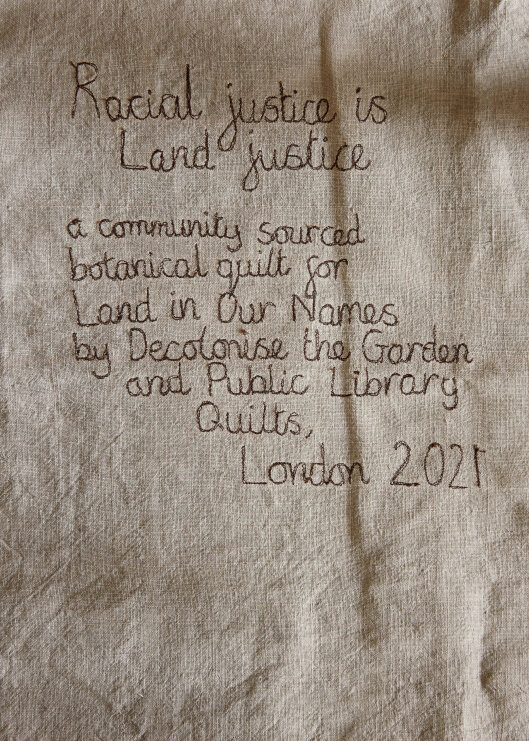 Racial justice is
Land justice
a community sourced
botanical quilt for
Land in Our Names
by Decolonise the Garden
and Public Library
Quilts,
London 2021